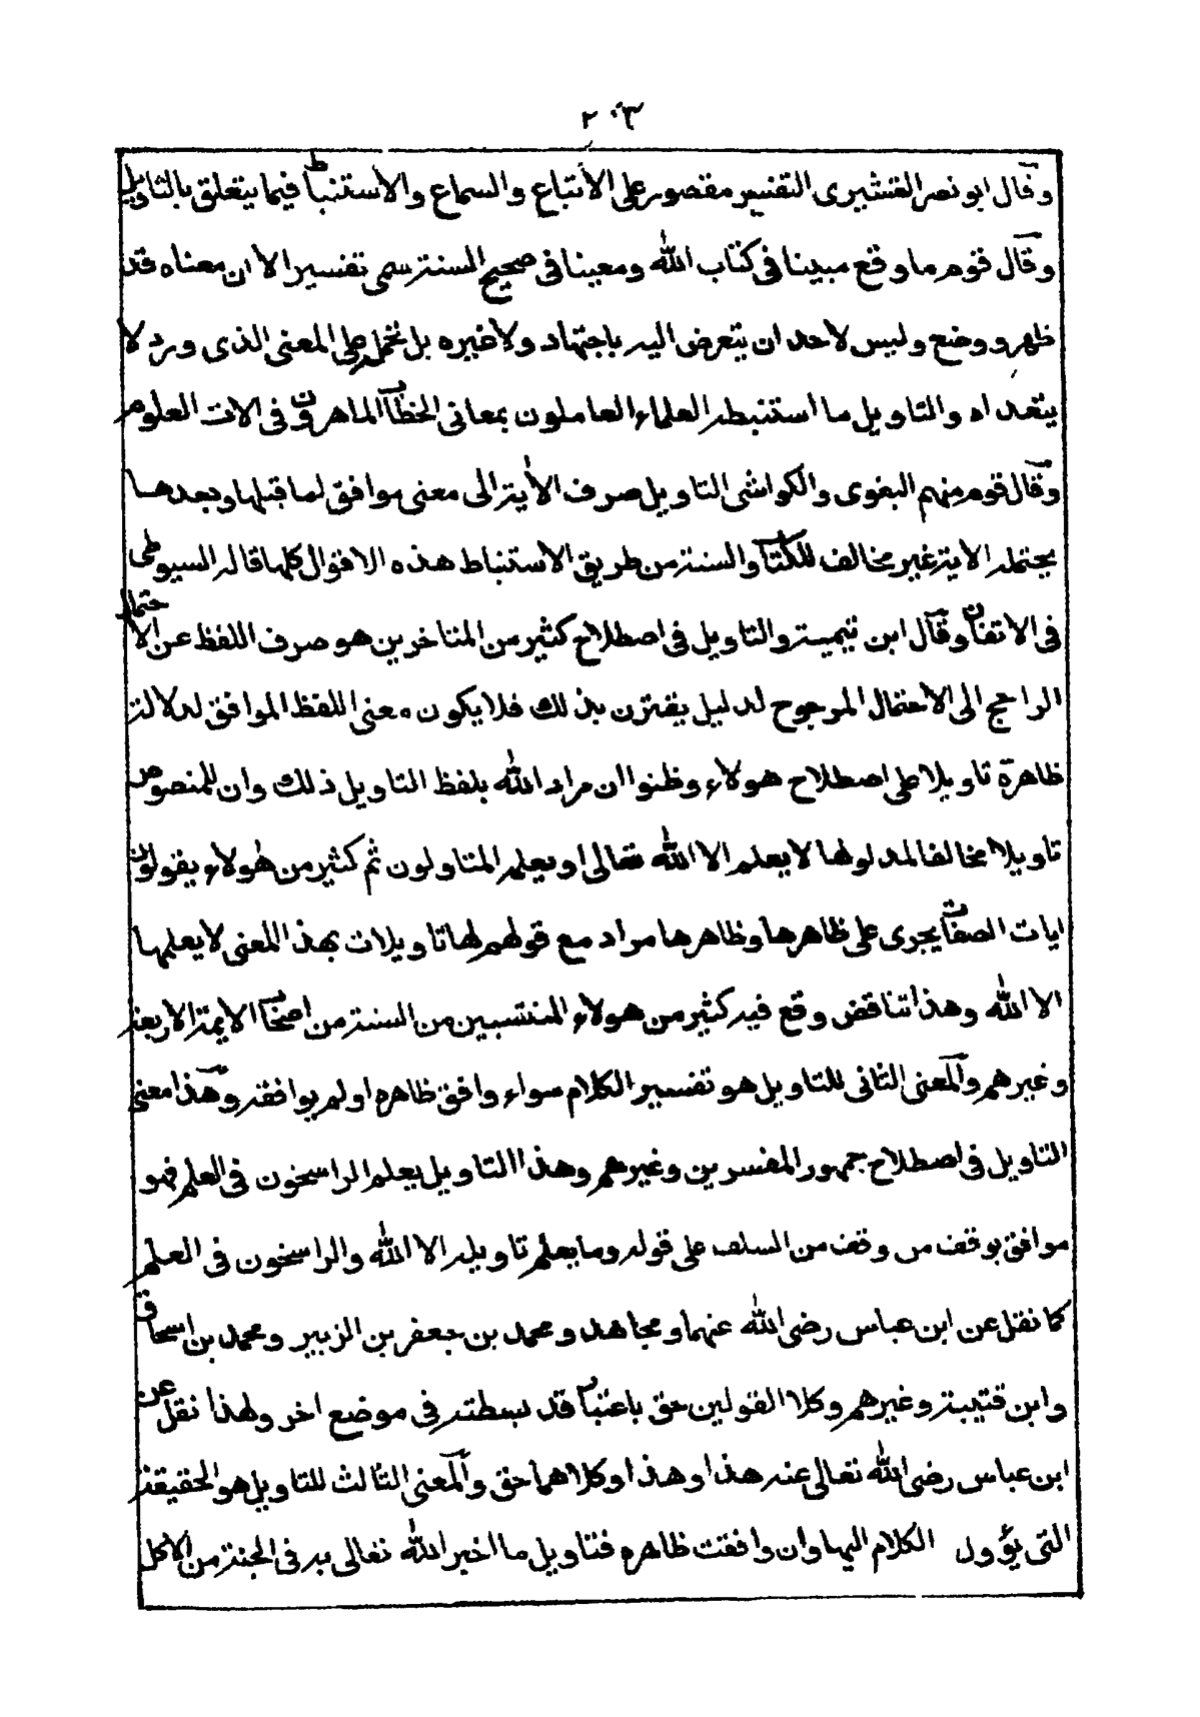 ٢٠٣
وقال ابو نصر القشيرى التفسير مقصور على الاتباع والسماع والاستنباط فيما يتعلق بالتاويل
وقال قوم ما وقع مبينا فى كتاب الله ومعينا فى صحيح السنة سمى تفسيرا لان معناه قد
ظهر ووضح وليس لاحد ان يتعرض اليه باجتهاد ولاغيره بل نحمله على المعنى الذى ورد لا
يتعداه والتاويل ما استنبطه العلماء العاملون بمعانى الخطاب الماهرون فى الات العلوم
وقال قوم منهم البغوى والكواشى التاويل صرف الأية الى معنى موافق لما قبلها وبعدها
يحتمله الاية غير مخالف للكتاب والسنة من طريق الاستنباط هذه الاقوال كلها قاله السيوطى
فى الاتقان وقال ابن تيمية والتاويل فى اصطلاح كثير من المتاخرين هو صرف اللفظ عن الاحتمال
الراجح الى الاحتمال المرجوح لدليل يقترن بذلك فلا يكون معنى اللفظ الموافق لدلالة
ظاهرة تاويلا على اصطلاح هولاء وظنوا ان مراد الله بلفظ التاويل ذلك وان للمنصوص
تاويلا مخالفا لمدلولها لا يعلمه الا الله تعالى او يعلمه المتاولون ثم كثير من هولاء يقولون
ايات الصفات يجرى على ظاهرها وظاهرها مراد مع قولهم لها تاويلات بهذا المعنى لا يعلمها
الا الله وهذا تناقض وقع فيه كثير من هولاء المنتسبين من السنة من اصحاب الايمة الاربعة
وغيرهم والمعنى الثانى للتاويل هو تفسير الكلام سواء وافق ظاهره او لم يوافقه وهذا معنى
التاويل فى اصطلاح جمهور المفسرين وغيرهم وهذا التاويل يعلمه الراسخون فى العلم فهو
موافق بوقف من وقف من السلف على قوله وما يعلم تاويله الا الله والراسخون فى العلم
كما نقل عن ابن عباس رضى الله عنهما ومجاهد ومحمد بن جعفر بن الزبير ومحمد بن اسحاق
وابن قتيبة وغيرهم وكلا القولين حق باعتبار قد بسطته فى موضع اخر ولهذا نقل عن
ابن عباس رضى الله تعالى عنه هذا وهذا وكلاهما حق والمعنى الثالث للتاويل هو الحقيقة
التى يؤول الكلام اليها وان وافقت ظاهره فتاويل ما اخبر الله تعالى به فى الجنة من الاكل